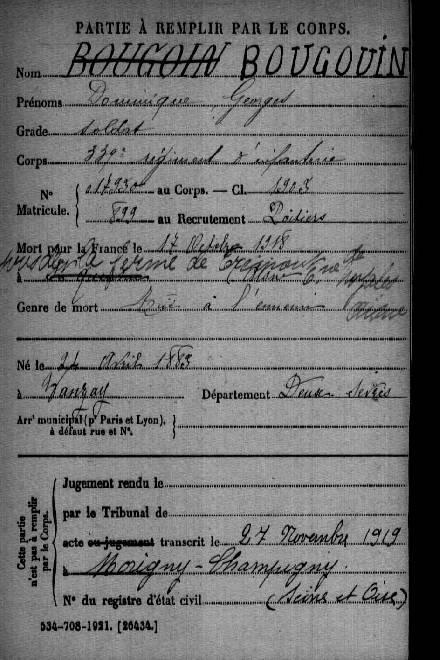 PARTIE À REMPLIR PAR LE CORPS.
Nom BOUGOIN BOUGOUIN
Prénoms Dominique Georges
Grade soldat
Corps 339e régiment d'infanterie
N° Matricule. { 017930 au Corps. — Cl. 1903
899 au Recrutement Poitiers
Mort pour la France le 17 Octobre 1918
à ferme de
Genre de mort Tué à l'ennemi
Né le 24 Avril 1883
à Vanzay Département Deux Sèvres
Arrt municipal (pr Paris et Lyon), à défaut rue et N°.
Cette partie n'est pas à remplir par le Corps.
Jugement rendu le
par le Tribunal de
acte ou jugement transcrit le 27 Novembre 1919
à Morigny-Champigny
N° du registre d'état civil (Seine et Oise)
534-708-1921. [26434.]